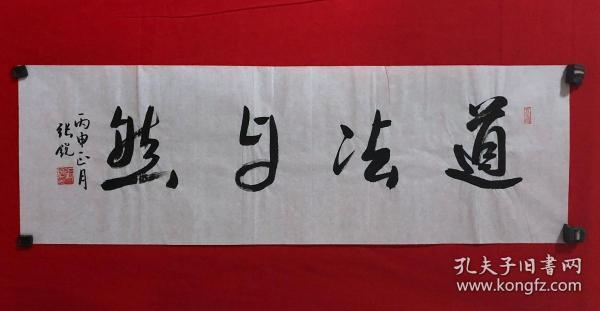 道法自然
丙申正月
张锐
孔夫子旧书网
www.kongfz.com